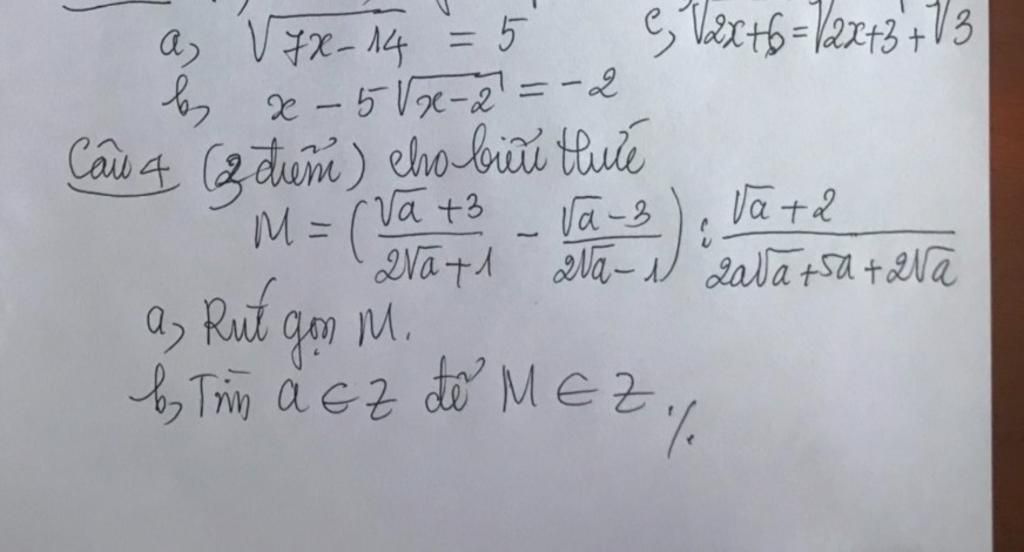 a, √7x-14 = 5
c, √2x+6 = √2x+3 + √3
b, x - 5√x-2 = -2
Câu 4 (3 điểm) cho biểu thức
M = (√a +3 / 2√a +1 - √a -3 / 2√a -1) : √a +2 / 2a√a +5a +2√a
a, Rút gọn M.
b, Tìm a ∈ Z để M ∈ Z ./.